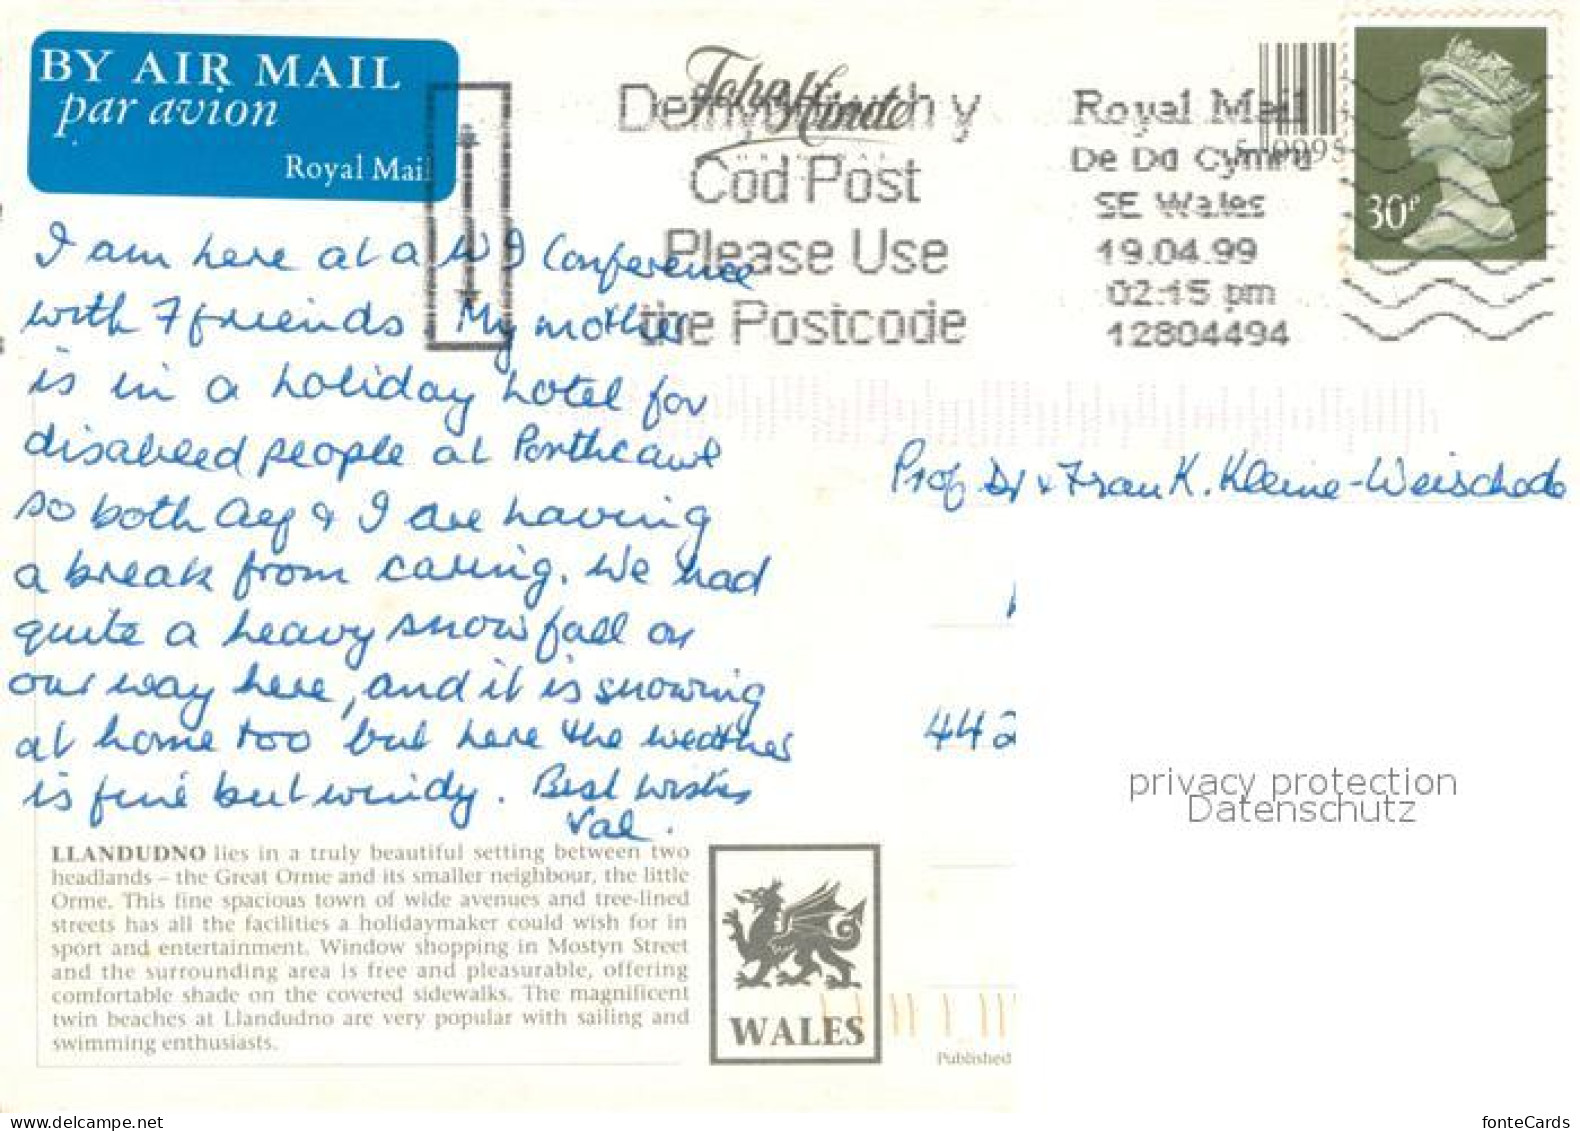 BY AIR MAIL
par avion
Royal Mail
John Hinde
ORIGINAL
Defnyddiwch y
Cod Post
Please Use
the Postcode
Royal Mail
De Dd Cymru
SE Wales
19.04.99
02:15 pm
12804494
30P
I am here at a WI Conference
with 7 friends My mother
is in a holiday hotel for
disabled people at Porthcawl
so both Alf & I are having
a break from caring. We had
quite a heavy snow fall on
our way here, and it is snowing
at home too but here the weather
is fine but windy. Best wishes
Val.
Prof Dr & Frau K. Kleine-Weischede
442
privacy protection
Datenschutz
LLANDUDNO lies in a truly beautiful setting between two
headlands – the Great Orme and its smaller neighbour, the little
Orme. This fine spacious town of wide avenues and tree-lined
streets has all the facilities a holidaymaker could wish for in
sport and entertainment. Window shopping in Mostyn Street
and the surrounding area is free and pleasurable, offering
comfortable shade on the covered sidewalks. The magnificent
twin beaches at Llandudno are very popular with sailing and
swimming enthusiasts.
WALES
Published
www.delcampe.net
fonteCards